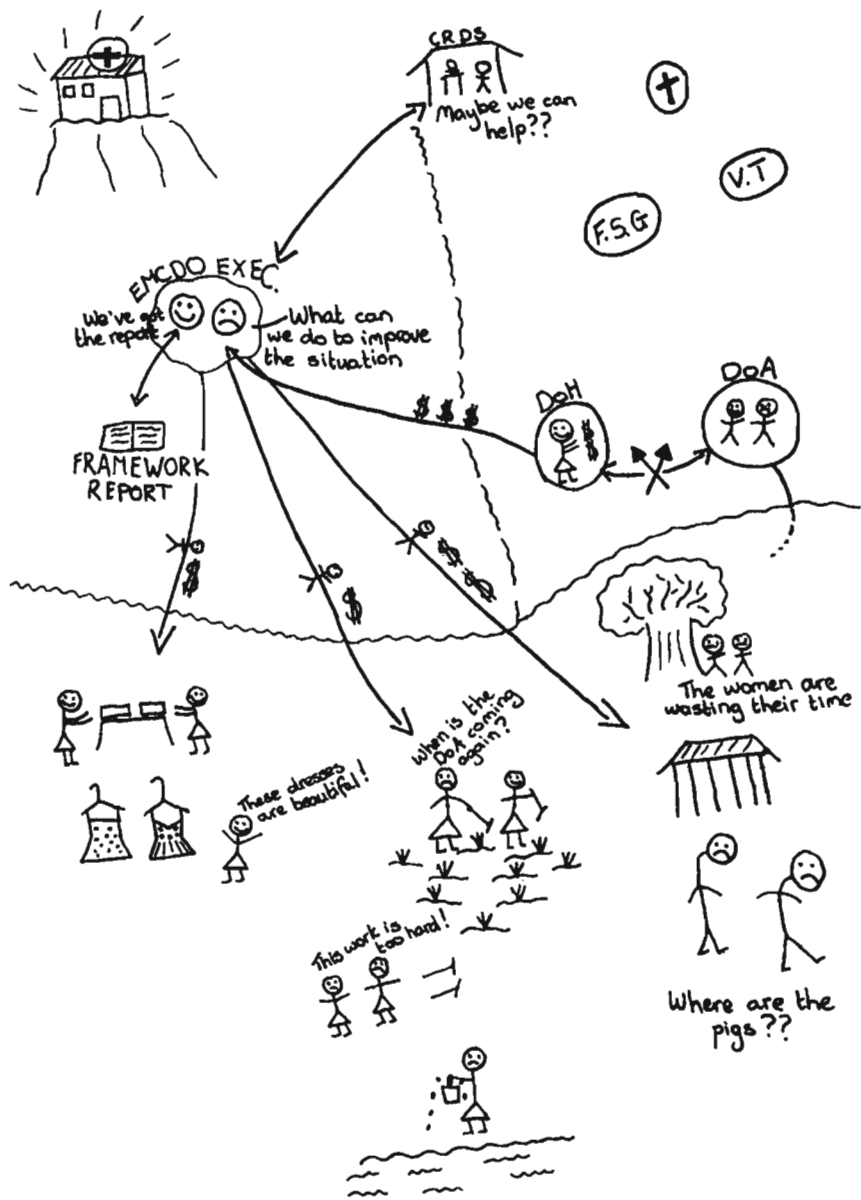 CRDS
Maybe we can
help??
V.T
F.S.G
EMCDO EXEC.
We've got
the report
What can
we do to improve
the situation
FRAMEWORK
REPORT
$ $ $
DoH
$
$
DoA
$
$
$
$
The women are
wasting their time
When is the
DoA coming
again?
These dresses
are beautiful!
This work is
too hard!
Where are the
pigs??